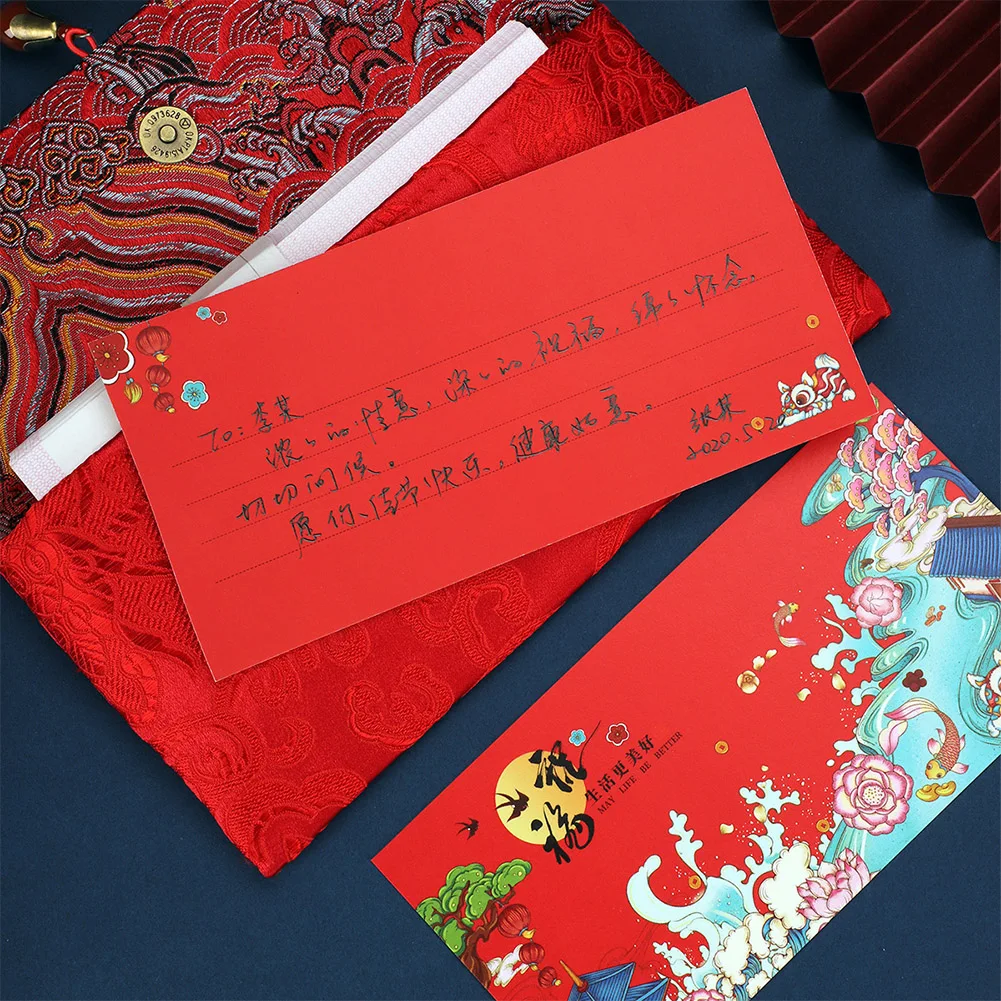 To: 李某
浓々的情意，深々的祝福，绵々怀念，
切切问候。
愿你、佳节快乐，健康如意。
纸某
2020.5.20
祝福
生活更美好
MAY LIFE BE BETTER